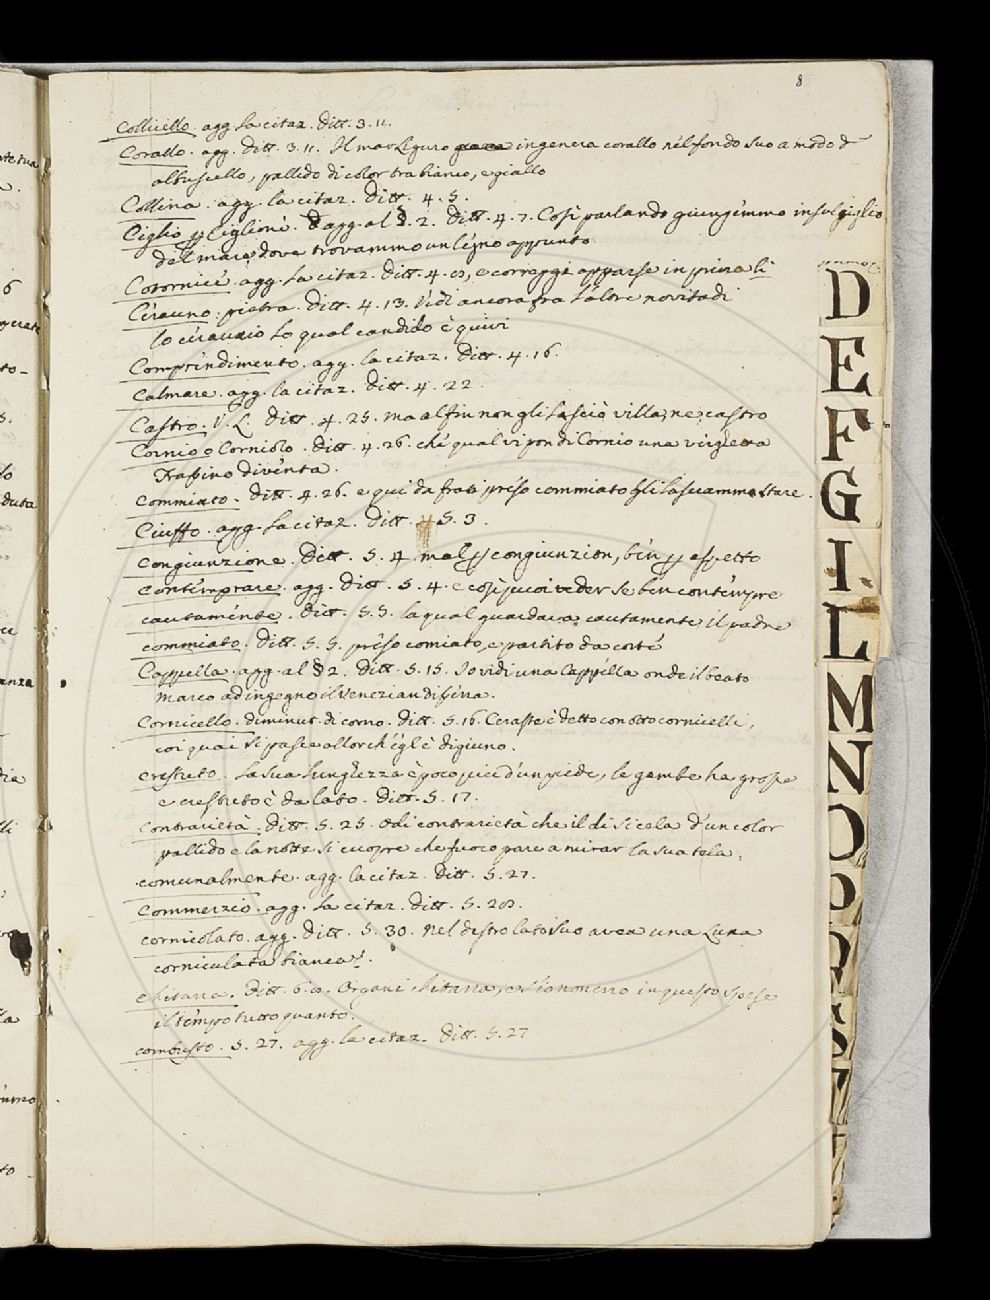 8
Collicello. agg. la citaz. Ditt. 3. 11.
Corallo. agg. Ditt. 3. 11. Il mar Liguro ingenera corallo nel fondo suo a modo d'
albuscello, pallido di color tra bianco, e giallo
Collina. agg. la citaz. Ditt. 4. 5.
Ciglio p Ciglione. agg. al §. 2. Ditt. 4. 7. Così parlando giungemmo insul giglio
del mare, dove trovammo un legno appunto
Cotornice. agg. la citaz. Ditt. 4. 8, e correggi apparse in prima lì
Ceraunio: pietra. Ditt. 4. 13. Vidi ancora fra l'altre novitadi
lo ceraunio lo qual candido è quivi
Comprendimento. agg. la citaz. Ditt. 4. 16.
Calmare. agg. la citaz. Ditt. 4. 22.
Castro. V. L. Ditt. 4. 25. ma al fin non gli lasciò villa, ne castro
Cornio o Corniolo. Ditt. 4. 26. che qual vi pon di Cornio una verghera
Frassino diventa.
Commiato. Ditt. 4. 26. e qui da frati preso commiato gli lasciammo stare.
Ciuffo. agg. la citaz. Ditt. 5. 3.
Congiunzione. Ditt. 5. 4. mal p congiunzion, ben p aspetto
Contemprare. agg. Ditt. 5. 4. e così puoi veder se ben contempre
cautamente. Ditt. 5. 5. la qual guardava cautamente il padre
commiato. Ditt. 5. 5. preso comiato, e partito da corte
Cappella. agg. al § 2. Ditt. 5. 15. Io vidi una Cappella onde il beato
Marco ad ingegno il Venezian
Cornicello. diminut. di corno. Ditt. 5. 16. Ceraste è detto con otto cornicelli,
coi quai si pasce allorch'egl'è digiuno.
crestuto. La sua lunghezza è poco più d'un piede, le gambe ha grosse
e crestuto è da lato. Ditt. 5. 17.
Contrarietà. Ditt. 5. 25. Odi contrarietà che il dì si cela d'un color
pallido e la notte si cuopre che fuoco pare a mirar la sua tela.
comunalmente. agg. la citaz. Ditt. 5. 27.
Commerzio. agg. la citaz. Ditt. 5. 28.
cornicolato. agg. Ditt. 5. 30. Nel destro lato suo avea una Luna
corniculata bianca.
chitarra. Ditt. 6. 8. Organi chitarra, in questo spese
il tempo tutto quanto.
combusto. 5. 27. agg. la citaz. Ditt. 5. 27
D
E
F
G
I
L
M
N
O
P
Q
S
T